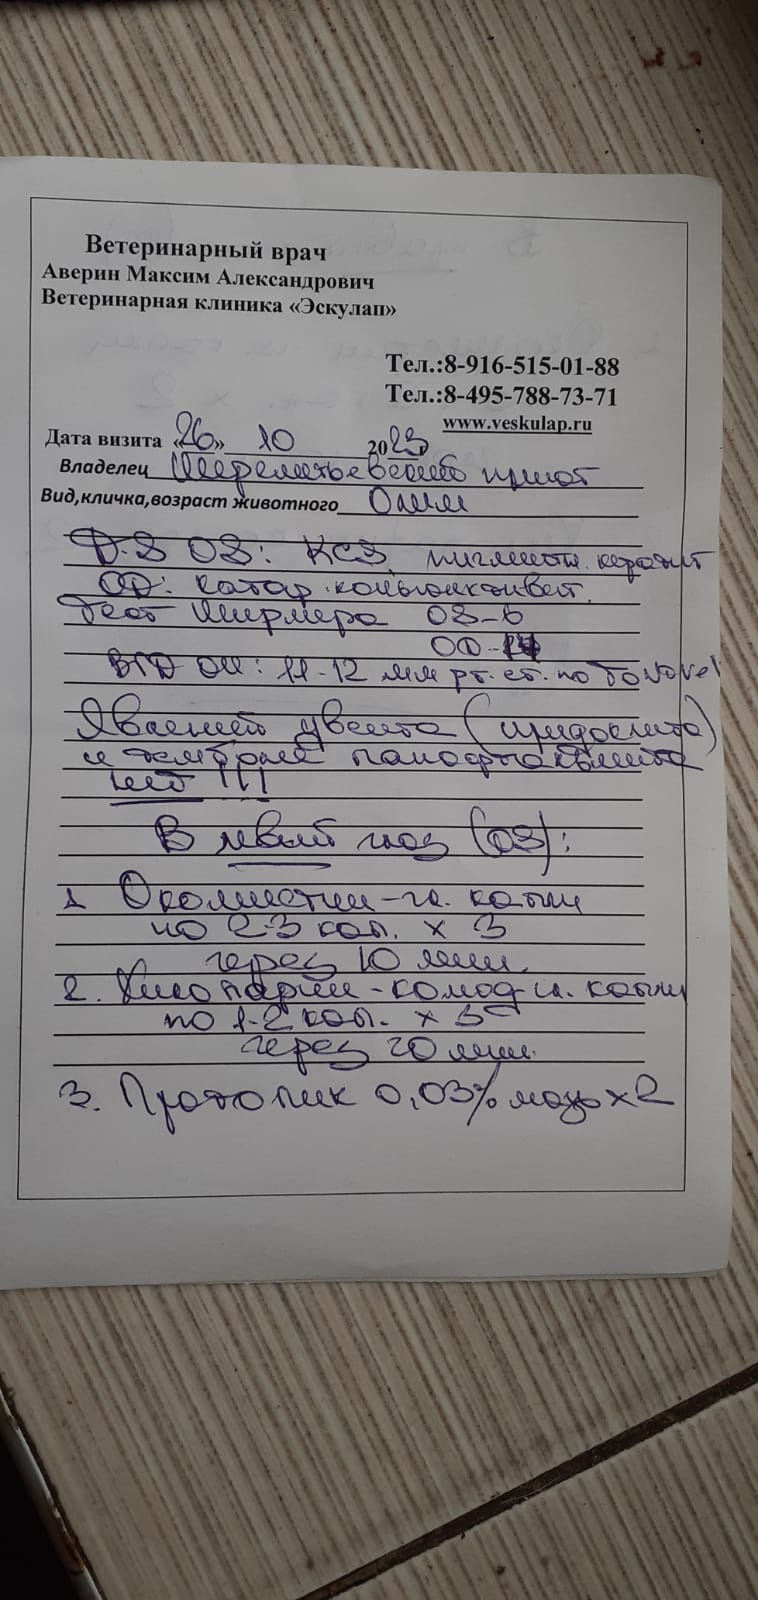 Ветеринарный врач
Аверин Максим Александрович
Ветеринарная клиника «Эскулап»
Тел.:8-916-515-01-88
Тел.:8-495-788-73-71
www.veskulap.ru
Дата визита «26» 10 2023
Владелец приют
Вид,кличка,возраст животного
D-S OS: КСЗ, пигментн. кератит
OD: катар. конъюнктивит.
Тест Ширмера OS-6
OD-
ВГД OU: 11-12 мм рт. ст. по Tonovet
Явлений увеита (иридоцита)
и
нет !!!
В левый глаз (OS):
1. Окомистин - гл. капли
по 2-3 кап. х 3
через 10 мин.
2. Хилопарин-комод гл. капли
по 1-2 кап. х 3
через 20 мин.
3. Протопик 0,03% мазь х 2